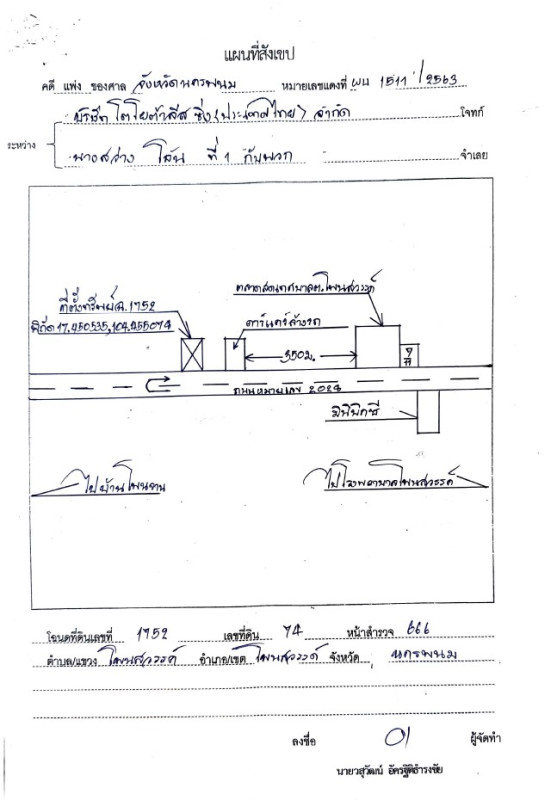 แผนที่สังเขป
คดี แพ่ง ของศาล จังหวัดนครพนม หมายเลขแดงที่ ผบ 1511/2563
บริษัท โตโยต้าลีสซิ่ง (ประเทศไทย) จำกัด โจทก์
ระหว่าง
นางสว่าง ที่ 1 กับพวก จำเลย
ตลาดสดเทศบาลต.โพนสวรรค์
ที่ตั้งทรัพย์ฉ.1752
พิกัด 17.450535,104.455074
คาร์แคร์ล้างรถ
350ม.
ถนนหมายเลข 2028
มินิบิ๊กซี
ไปบ้านโพนจาน
ไปโรงพยาบาลโพนสวรรค์
โฉนดที่ดินเลขที่ 1752 เลขที่ดิน 74 หน้าสำรวจ 666
ตำบล/แขวง โพนสวรรค์ อำเภอ/เขต โพนสวรรค์ จังหวัด นครพนม
ลงชื่อ ผู้จัดทำ
นายวสุวัฒน์ อัครฐิติธำรงชัย